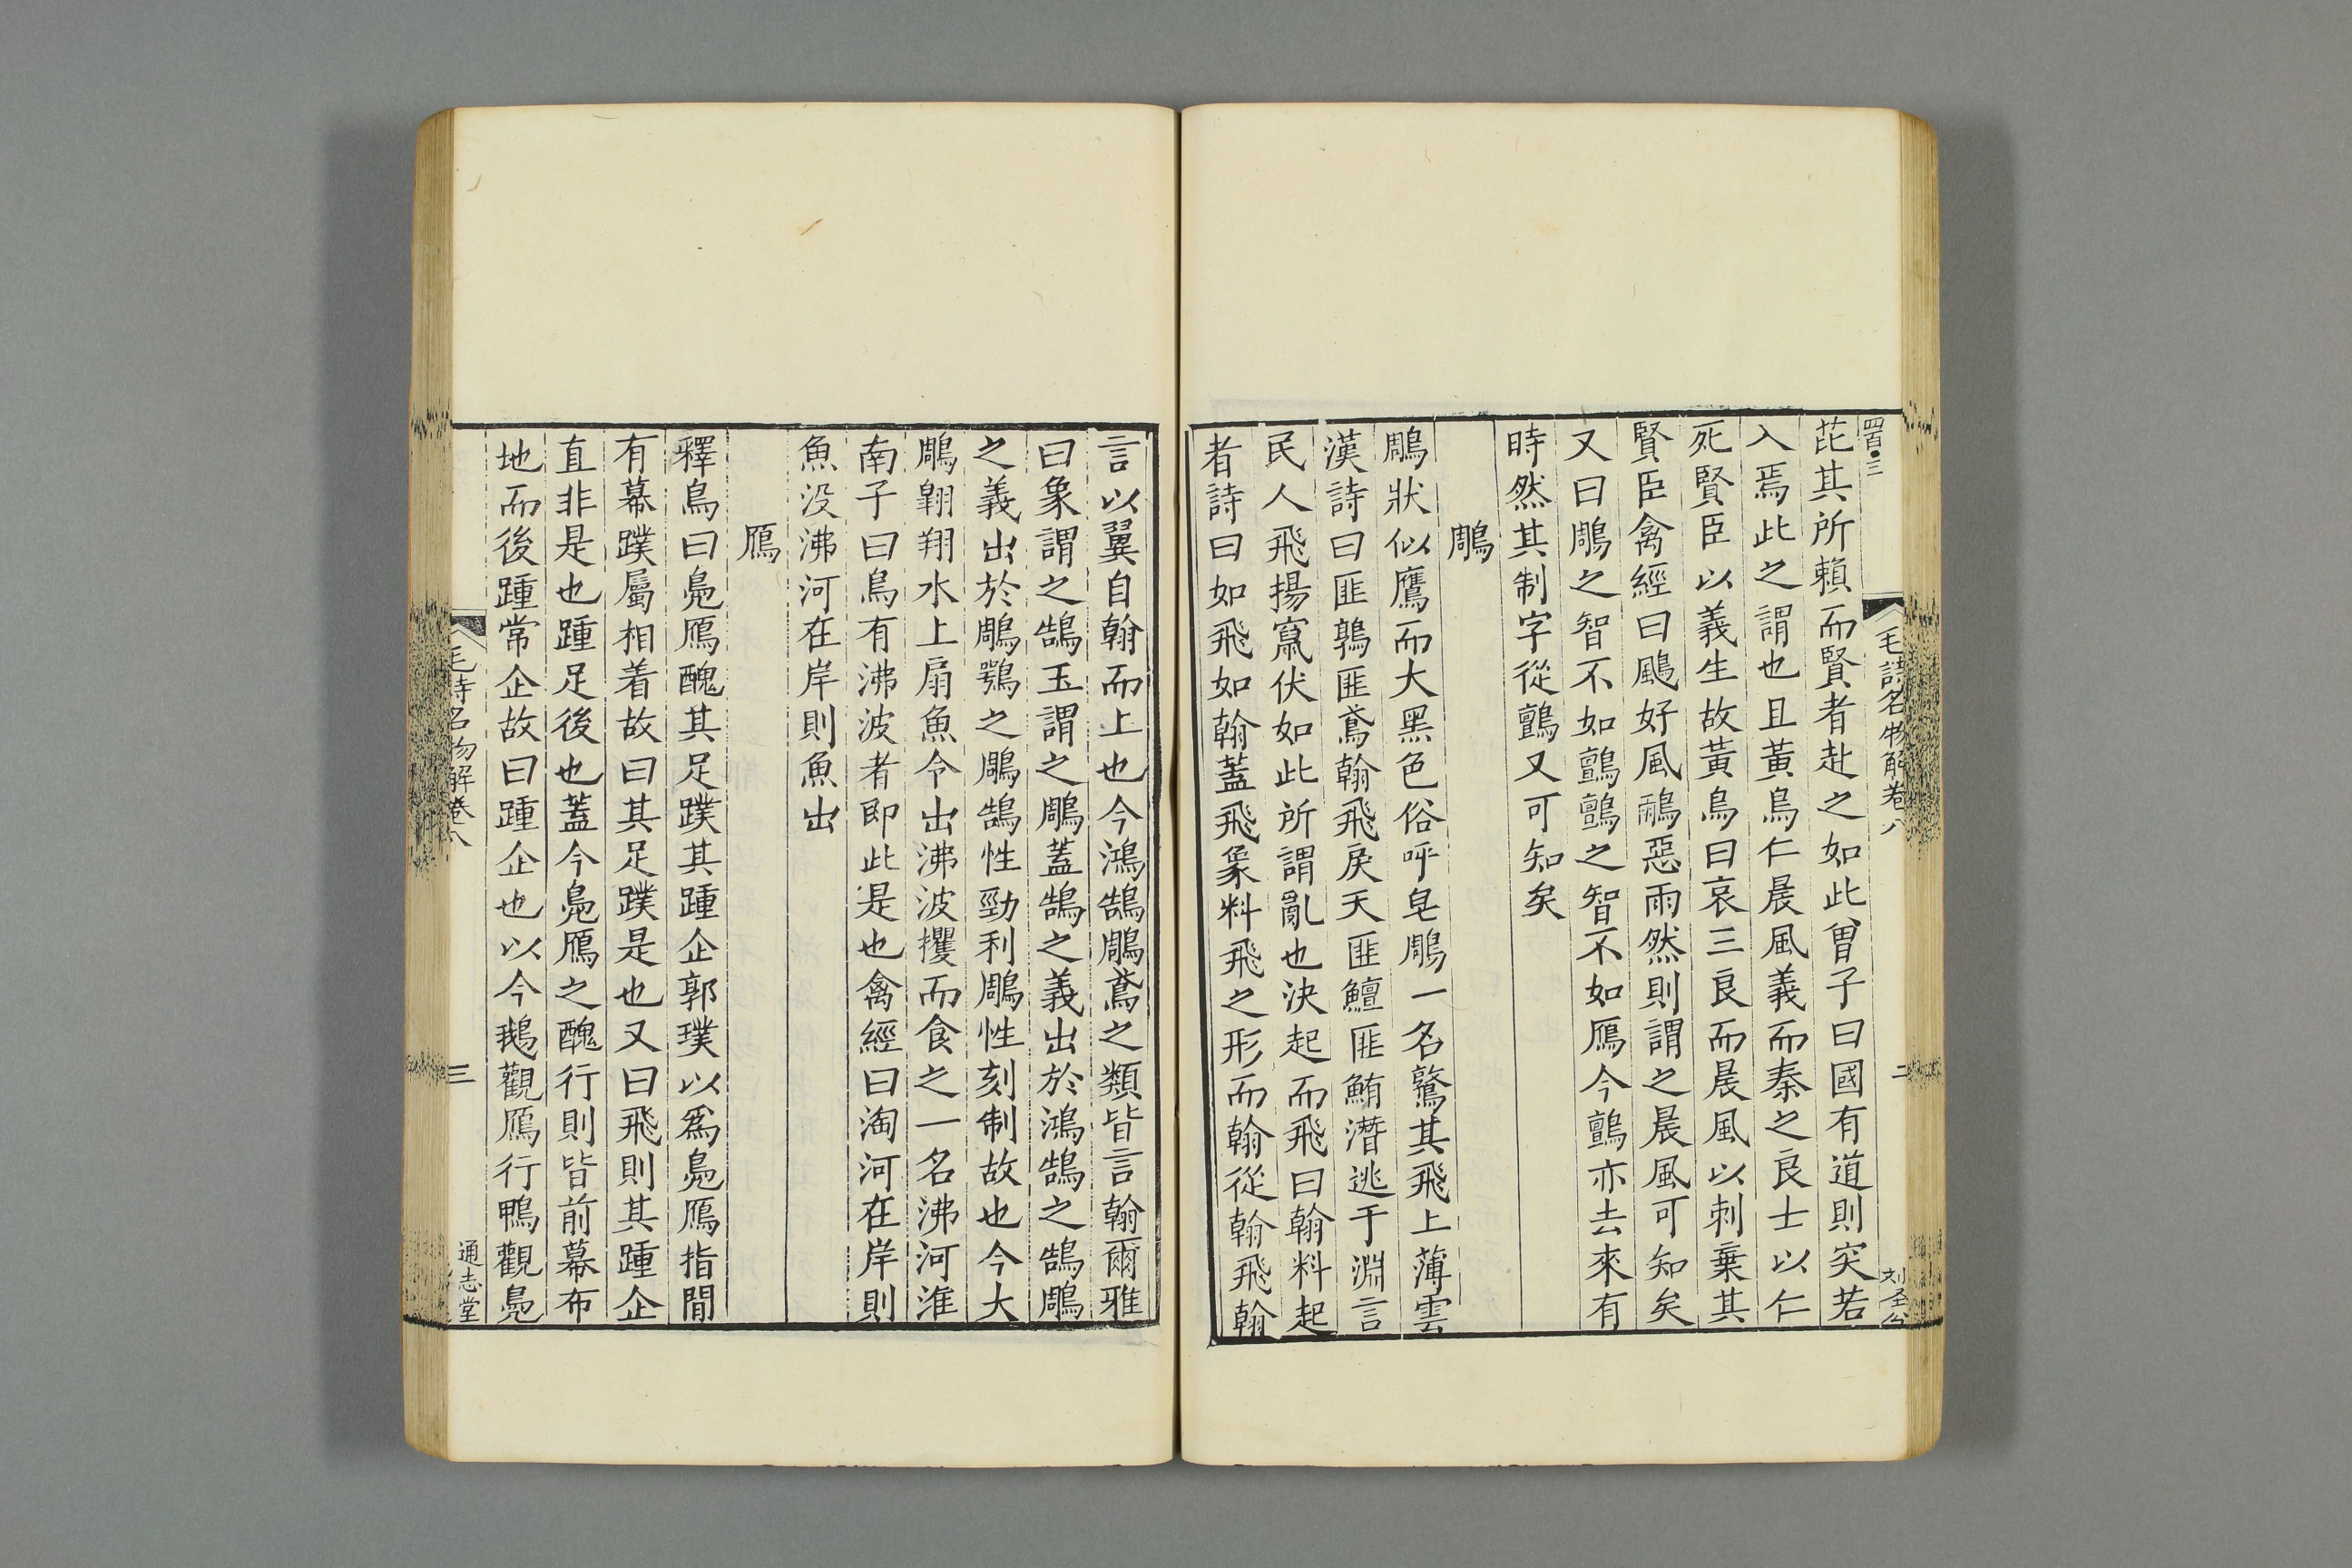 四百●三
毛詩名物解卷八
二
刘圣公
茈其所賴而賢者赴之如此曾子曰國有道則突若
入焉此之謂也且黃鳥仁晨風義而秦之良士以仁
死賢臣以義生故黃鳥曰哀三良而晨風以刺棄其
賢臣禽經曰鷐好風鸍惡雨然則謂之晨風可知矣
又曰鵰之智不如鸇鸇之智不如鴈今鸇亦去來有
時然其制字從鸇又可知矣
鵰
鵰狀似鷹而大黑色俗呼皂鵰一名鷻其飛上薄雲
漢詩曰匪鶉匪鳶翰飛戾天匪鱣匪鮪潛逃于淵言
民人飛揚竄伏如此所謂亂也決起而飛曰翰料起
者詩曰如飛如翰蓋飛象料飛之形而翰從翰飛翰
言以翼自翰而上也今鴻鵠鵰鳶之類皆言翰爾雅
曰象謂之鵠玉謂之鵰蓋鵠之義出於鴻鵠之鵠鵰
之義出於鵰鶚之鵰鵠性勁利鵰性刻制故也今大
鵰翱翔水上扇魚令出沸波攫而食之一名沸河淮
南子曰鳥有沸波者即此是也禽經曰淘河在岸則
魚没沸河在岸則魚出
鴈
釋鳥曰鳧鴈醜其足蹼其踵企郭璞以爲鳧鴈指間
有幕蹼屬相着故曰其足蹼是也又曰飛則其踵企
直非是也踵足後也蓋今鳧鴈之醜行則皆前幕布
地而後踵常企故曰踵企也以今鵝觀鴈行鴨觀鳧
毛詩名物解卷八
三
通志堂